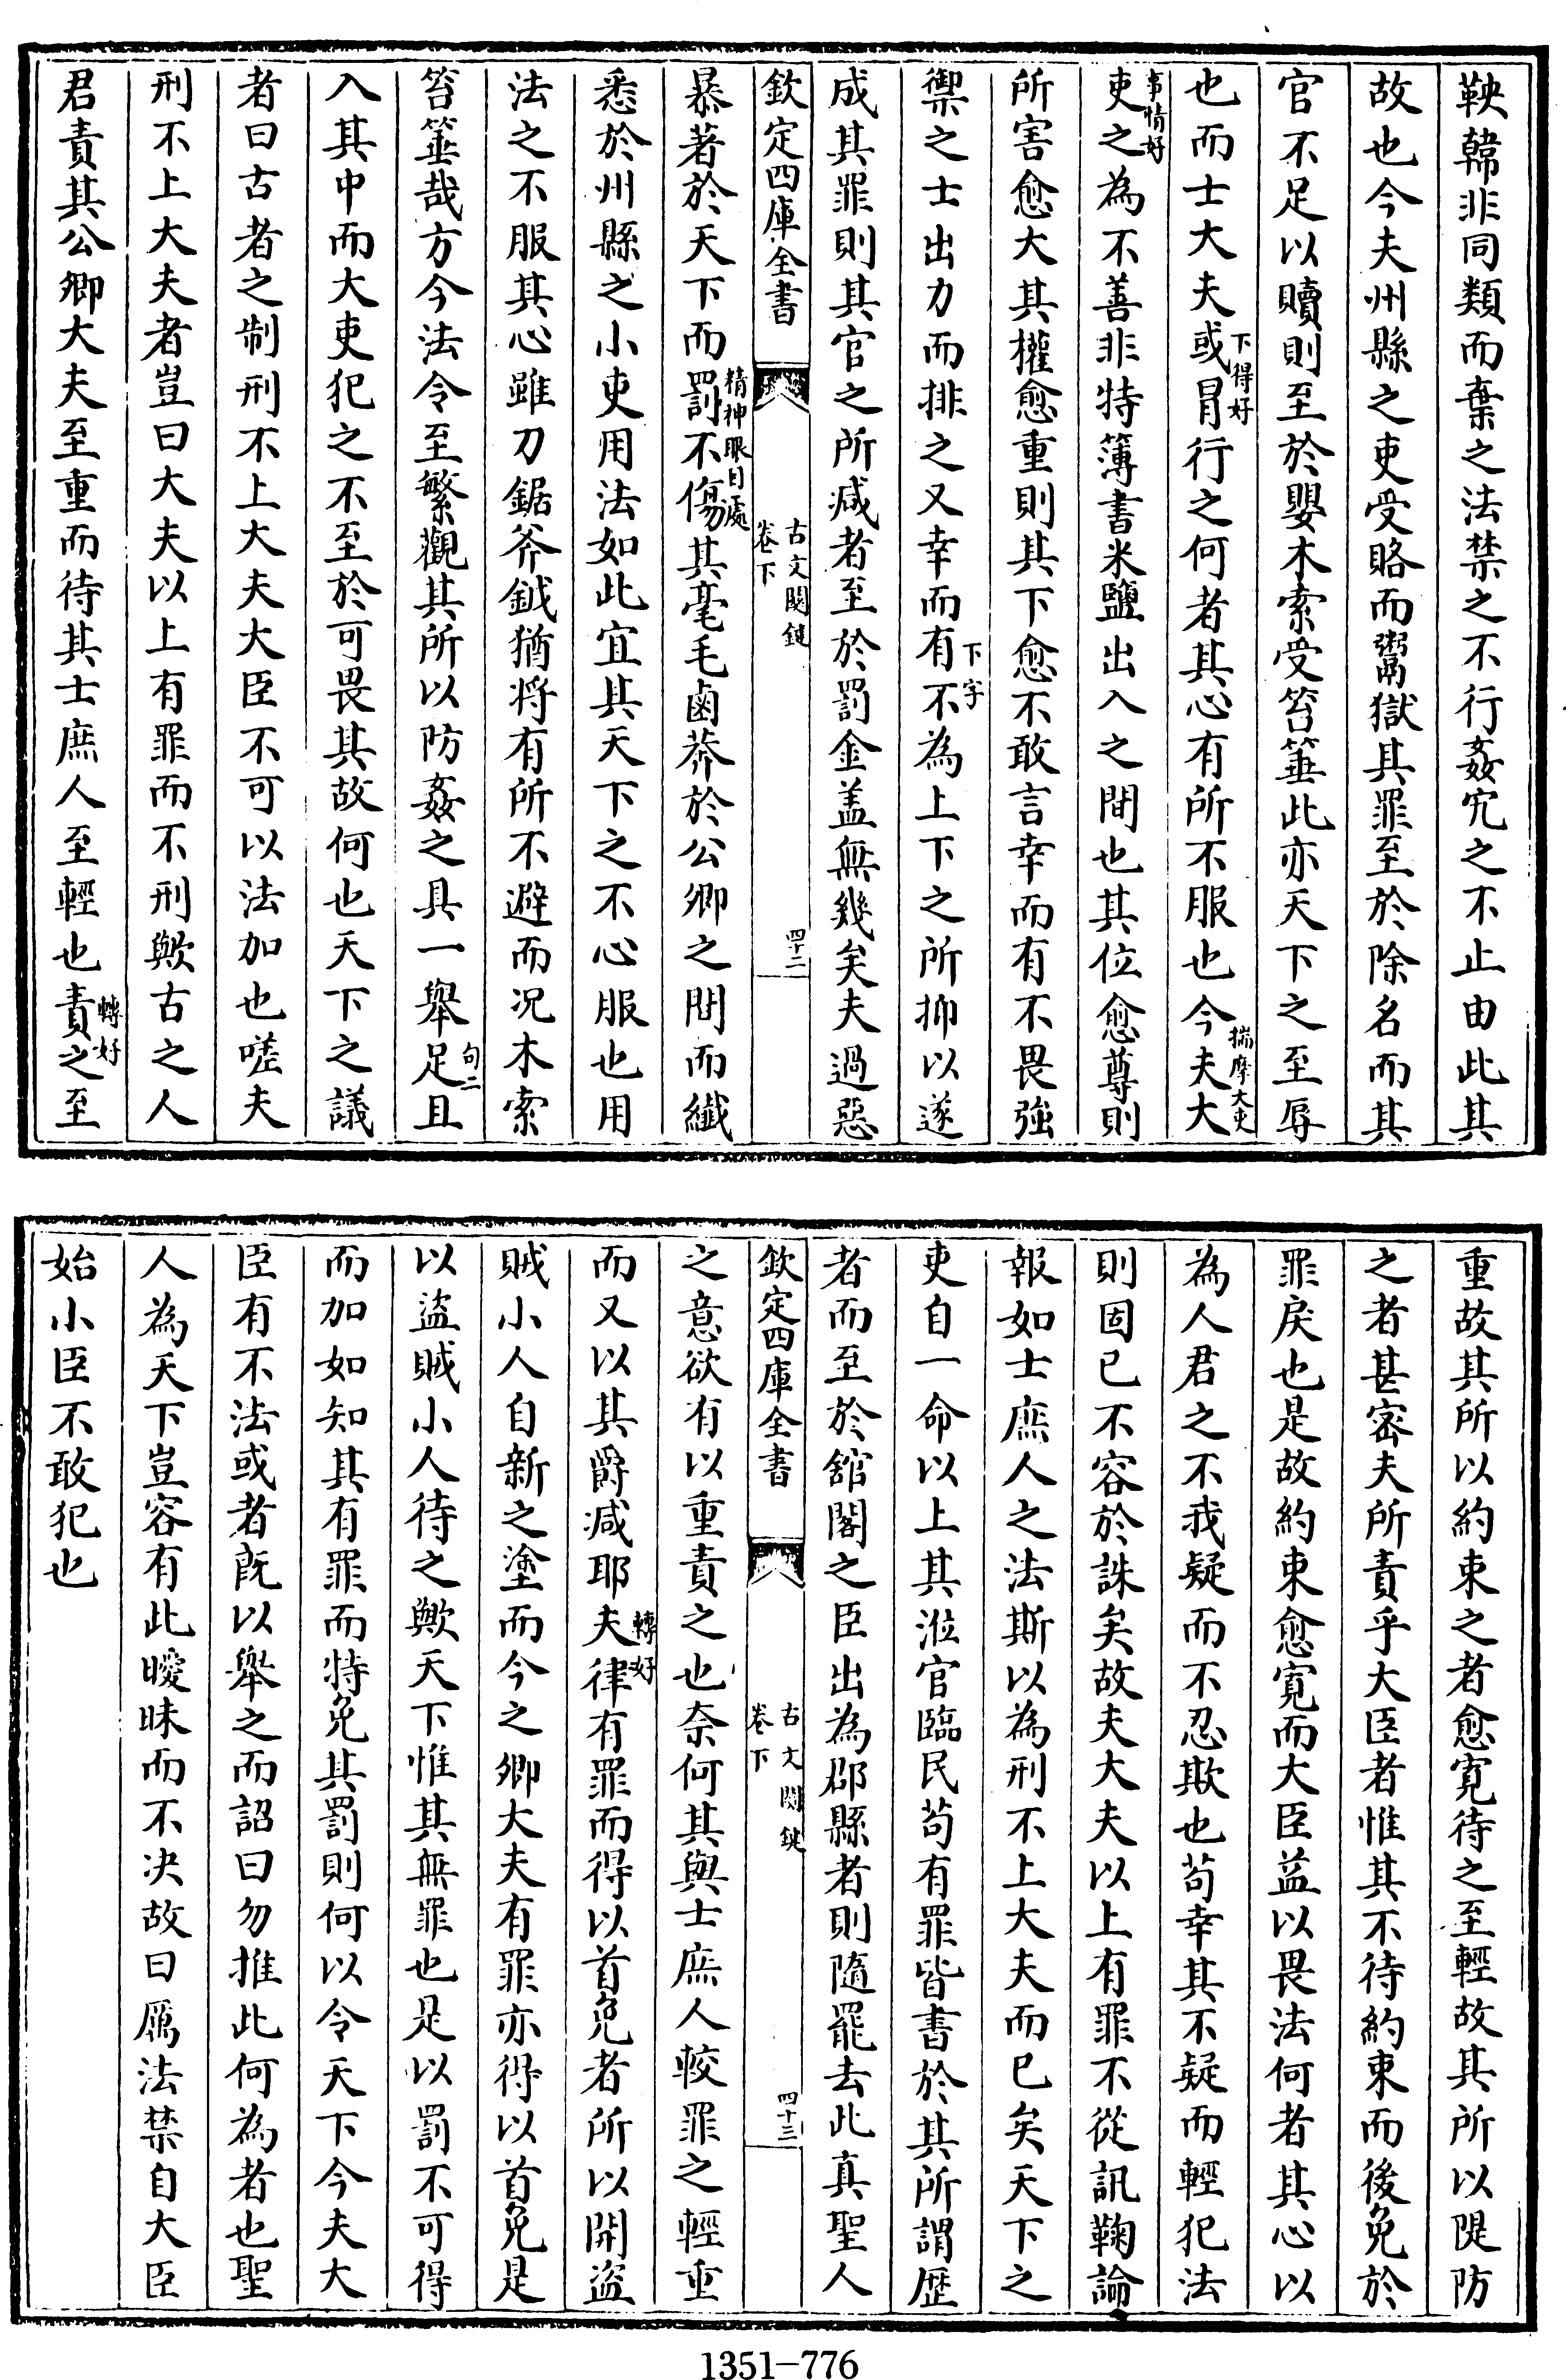 鞅韓非同類而棄之法禁之不行姦宄之不止由此其
故也今夫州縣之吏受賂而鬻獄其罪至於除名而其
官不足以贖則至於嬰木索受笞箠此亦天下之至辱
也而士大夫或冒行之何者其心有所不服也今夫大
下得好
揣摩大吏
吏之為不善非特簿書米鹽出入之間也其位愈尊則
事情好
所害愈大其權愈重則其下愈不敢言幸而有不畏強
禦之士出力而排之又幸而有不為上下之所抑以遂
下字
成其罪則其官之所减者至於罰金盖無幾矣夫過惡
欽定四庫全書
古文關鍵
卷下
四十二
暴著於天下而罰不傷其毫毛鹵莽於公卿之間而纎
精神眼目處
悉於州縣之小吏用法如此宜其天下之不心服也用
法之不服其心雖刀鋸斧鉞猶将有所不避而况木索
笞箠哉方今法令至繁觀其所以防姦之具一舉足且
句二
入其中而大吏犯之不至於可畏其故何也天下之議
者曰古者之制刑不上大夫大臣不可以法加也嗟夫
刑不上大夫者豈曰大夫以上有罪而不刑歟古之人
君責其公卿大夫至重而待其士庶人至輕也責之至
轉好
重故其所以約束之者愈寛待之至輕故其所以隄防
之者甚宻夫所責乎大臣者惟其不待約束而後免於
罪戾也是故約束愈寛而大臣益以畏法何者其心以
為人君之不我疑而不忍欺也苟幸其不疑而輕犯法
則固已不容於誅矣故夫大夫以上有罪不從訊鞠論
報如士庶人之法斯以為刑不上大夫而已矣天下之
吏自一命以上其涖官臨民苟有罪皆書於其所謂歴
者而至於舘閣之臣出為郡縣者則隨罷去此真聖人
欽定四庫全書
古文關鍵
卷下
四十三
之意欲有以重責之也奈何其與士庶人較罪之輕重
而又以其爵减耶夫律有罪而得以首免者所以開盗
轉好
賊小人自新之塗而今之卿大夫有罪亦得以首免是
以盗賊小人待之歟天下惟其無罪也是以罰不可得
而加如知其有罪而特免其罰則何以令天下今夫大
臣有不法或者既以舉之而詔曰勿推此何為者也聖
人為天下豈容有此曖昧而不决故曰厲法禁自大臣
始小臣不敢犯也
1351-776